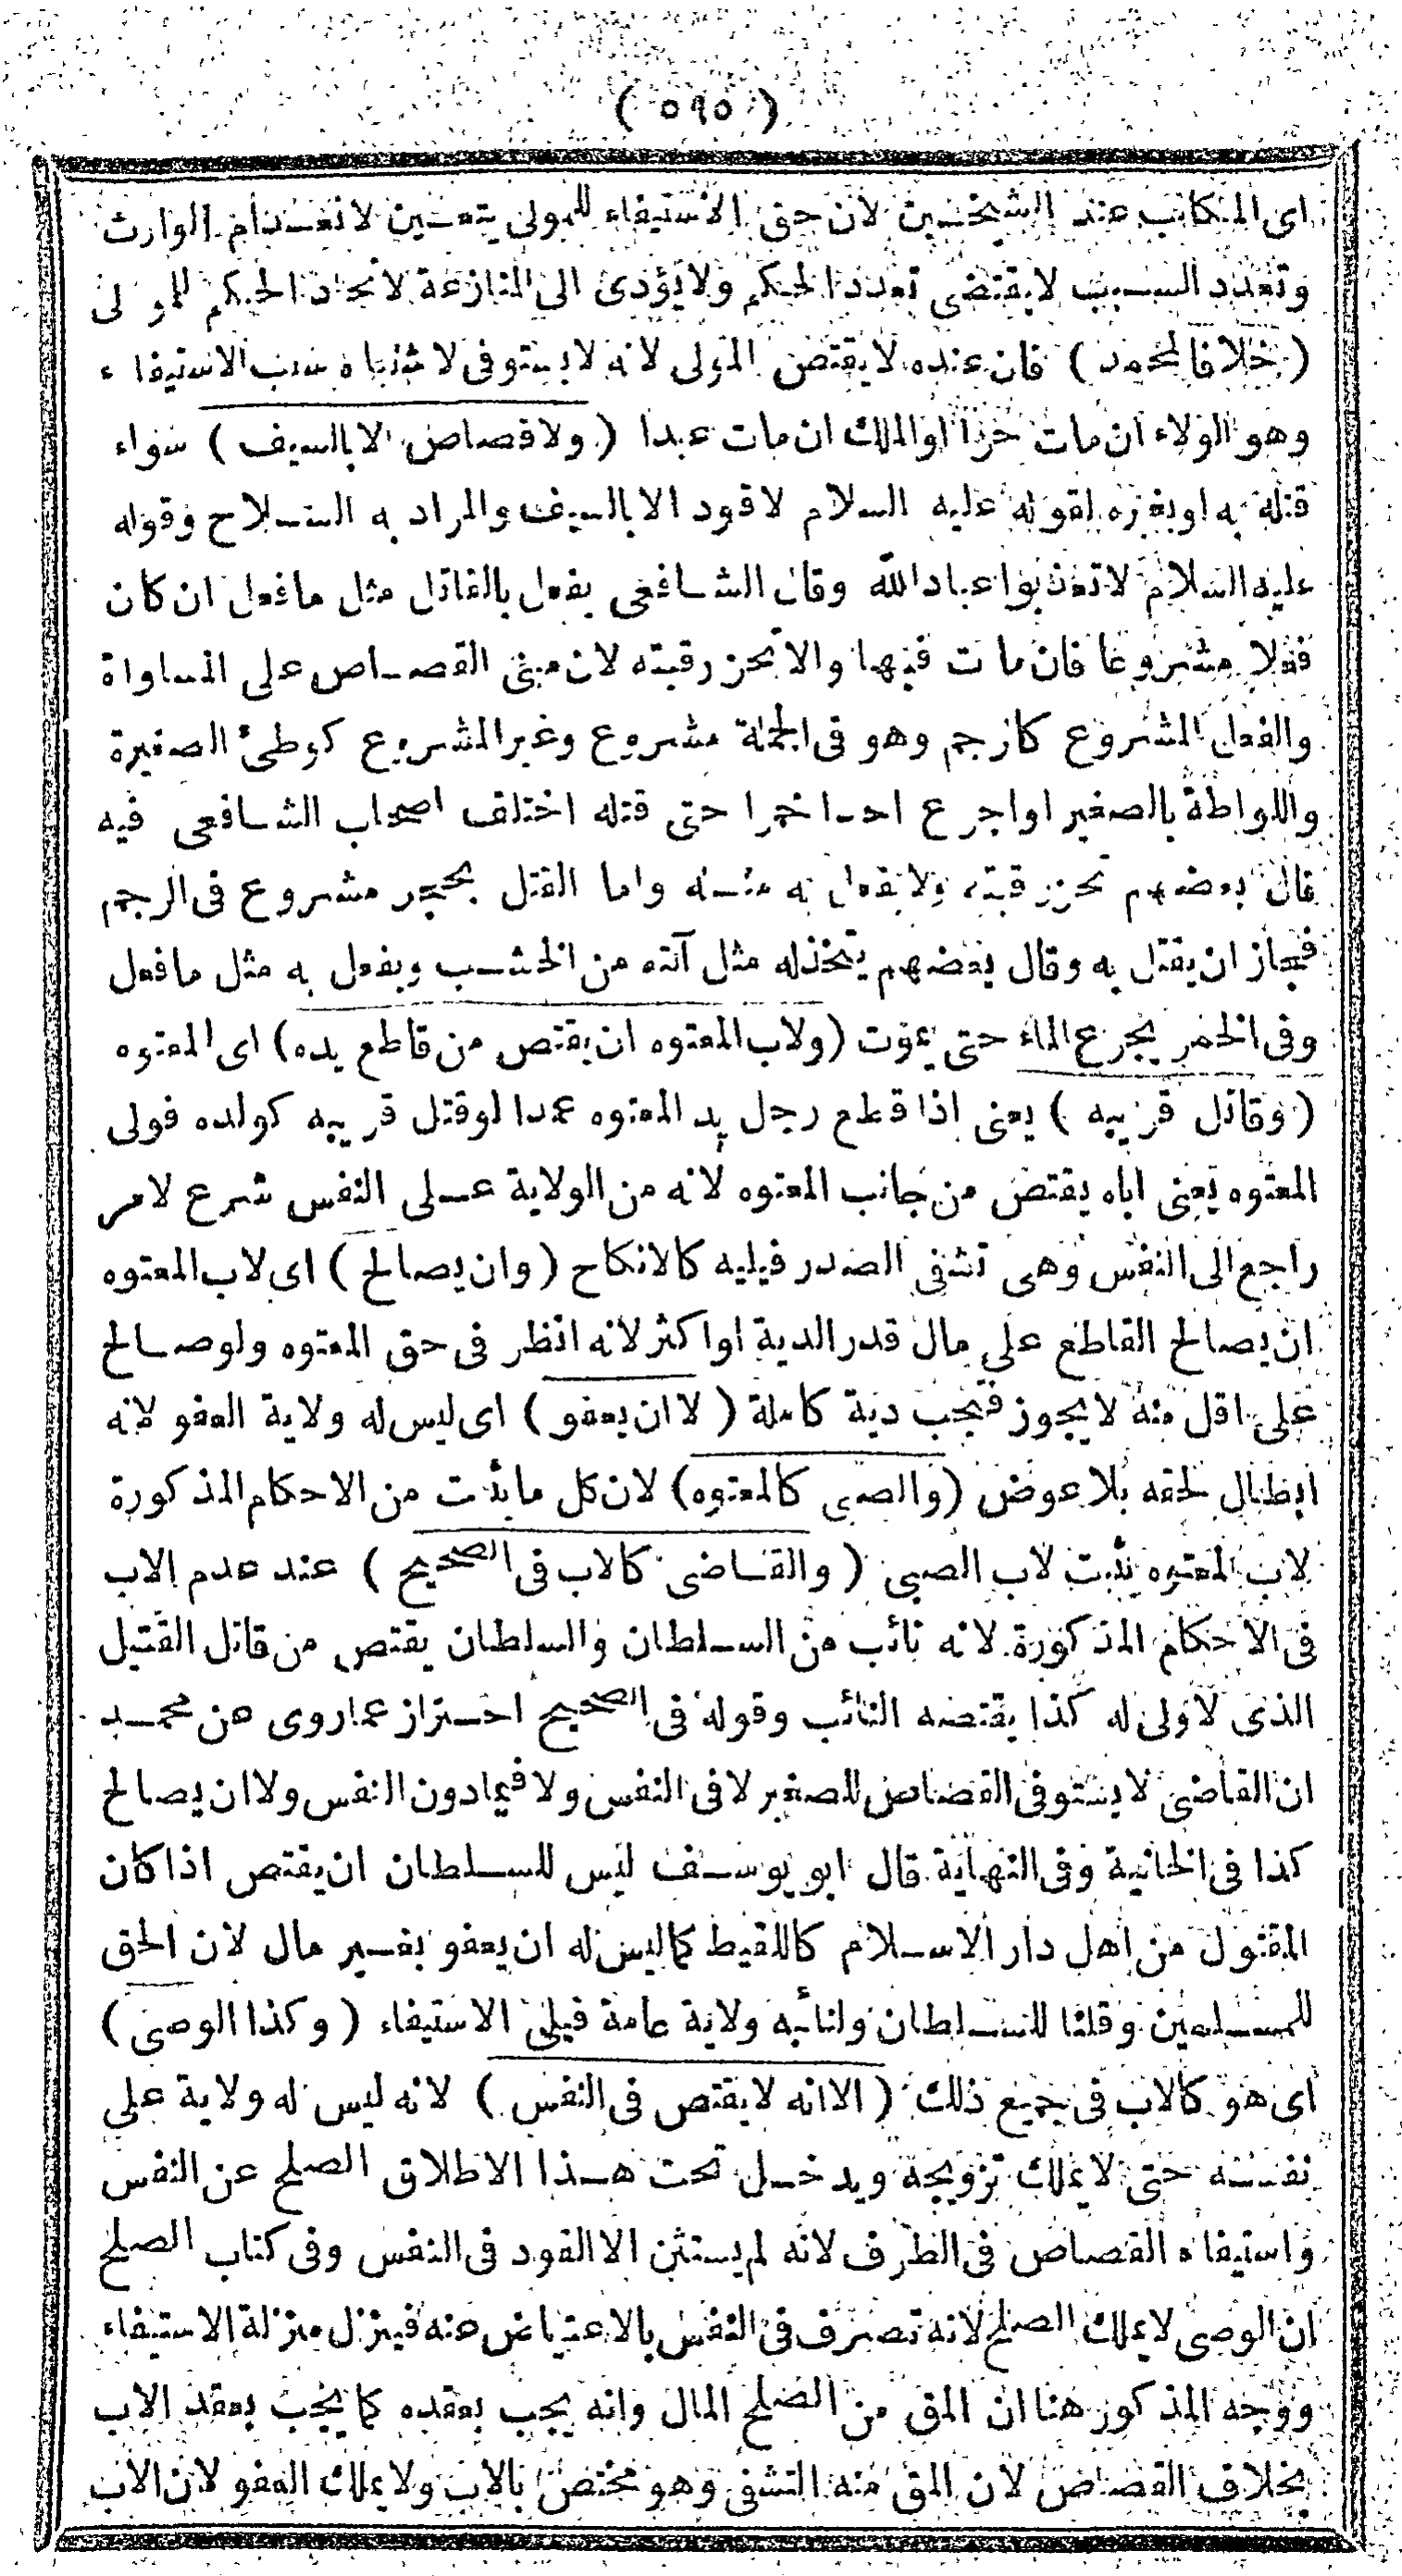 ( ٥٩٥ )
اى المكاتب عند الشيخين لان حق الاستيفاء للمولى يتعين لانعدام الوارث
وتعدد السبب لايقتضى تعددالحكم ولايؤدى الى المنازعة لاتحادالحكم للمولى
( خلافا لمحمد ) فان عنده لايقتص المولى لانه لايستوفى لاشتباه سبب الاستيفاء
وهو الولاء ان مات حرا اوالملك ان مات عبدا ( ولاقصاص الا بالسيف ) سواء
قتله به اوبغيره لقوله عليه السلام لاقود الا بالسيف والمراد به السلاح وقوله
عليه السلام لاتعذبوا عبادالله وقال الشافعى يفعل بالقاتل مثل مافعل ان كان
فعلا مشروعا فان مات فيها والا تحز رقبته لان مبنى القصاص على المساواة
والفعل المشروع كالرجم وهو فى الجملة مشروع وغيرالمشروع كوطئ الصغيرة
واللواطة بالصغير اواجرع احدا خمرا حتى قتله اختلف اصحاب الشافعى فيه
قال بعضهم تحزرقبته ولايفعل به مثله واما القتل بحجر مشروع فى الرجم
فجاز ان يقتل به وقال بعضهم يتخذله مثل آلته من الخشب ويفعل به مثل مافعل
وفى الخمر يجرع الماء حتى يموت (ولاب المعتوه ان يقتص من قاطع يده) اى المعتوه
( وقاتل قريبه ) يعنى اذا قطع رجل يد المعتوه عمدا اوقتل قريبه كولده فولى
المعتوه يعنى اباه يقتص من جانب المعتوه لانه من الولاية على النفس شرع لامر
راجع الى النفس وهى تشفى الصدر فيليه كالانكاح (وان يصالح ) اى لاب المعتوه
ان يصالح القاطع على مال قدرالدية اواكثر لانه انظر فى حق المعتوه ولوصالح
على اقل منه لايجوز فتجب دية كاملة ( لا ان يعفو ) اى ليس له ولاية العفو لانه
ابطال لحقه بلاعوض (والصبى كالمعتوه) لان كل ماثبت من الاحكام المذكورة
لاب المعتوه يثبت لاب الصبى ( والقاضى كالاب فى الصحيح ) عند عدم الاب
فى الاحكام المذكورة لانه نائب من السلطان والسلطان يقتص من قاتل القتيل
الذى لاولى له كذا يقتصه النائب وقوله فى الصحيح احتراز عماروى عن محمد
ان القاضى لايستوفى القصاص للصغير لافى النفس ولا فيمادون النفس ولا ان يصالح
كذا فى الخانية وفى النهاية قال ابو يوسف ليس للسلطان ان يقتص اذا كان
المقتول من اهل دار الاسلام كاللقيط كماليس له ان يعفو بغير مال لان الحق
للمسلمين وقلنا للسلطان ولنائبه ولاية عامة فيلى الاستيفاء ( وكذا الوصى )
اى هو كالاب فى جميع ذلك ( الا انه لايقتص فى النفس ) لانه ليس له ولاية على
نفسه حتى لايملك تزويجه ويدخل تحت هذا الاطلاق الصلح عن النفس
واستيفاء القصاص فى الطرف لانه لم يستثن الا القود فى النفس وفى كتاب الصلح
ان الوصى لايملك الصلح لانه تصرف فى النفس بالاعتياض عنه فينزل منزلة الاستيفاء
ووجه المذكور هنا ان المق من الصلح المال وانه يجب بعقده كما يجب بعقد الاب
بخلاف القصاص لان المق منه التشفى وهو مختص بالاب ولايملك العفو لان الاب